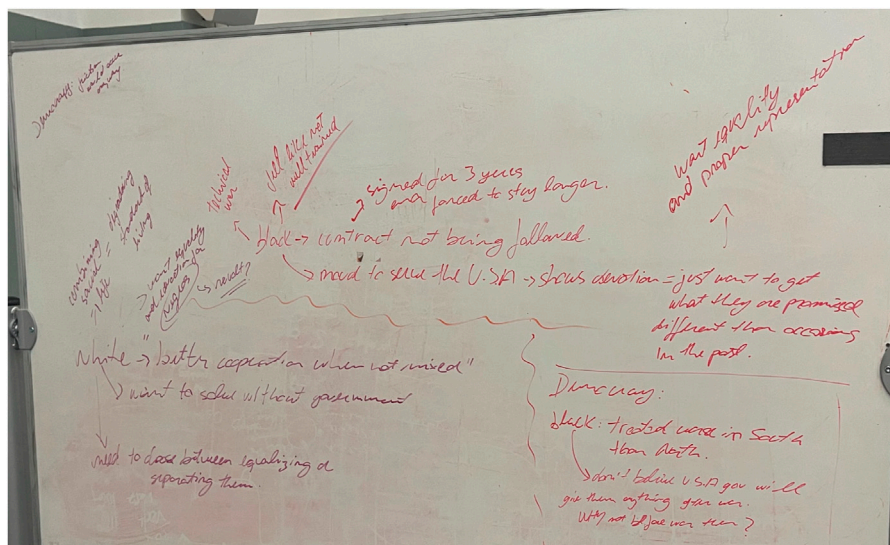 Democracy:
want equality
and proper representation
feel like not
well trained
technical
war
signed for 3 years
and forced to stay longer.
black → contract not being followed.
→ moved to serve the U.S.A → shows devotion = just want to get
what they are promised
different than occasions
in the past.
combining
social =
→ want equality
and
→ revolt?
White → "better cooperation when not mixed"
→ want to solve without government
need to choose between equalizing or
separating them.
Democracy:
black: treated worse in South
than North.
→ don't believe U.S.A gov will
give them anything after war.
Why not before war then?